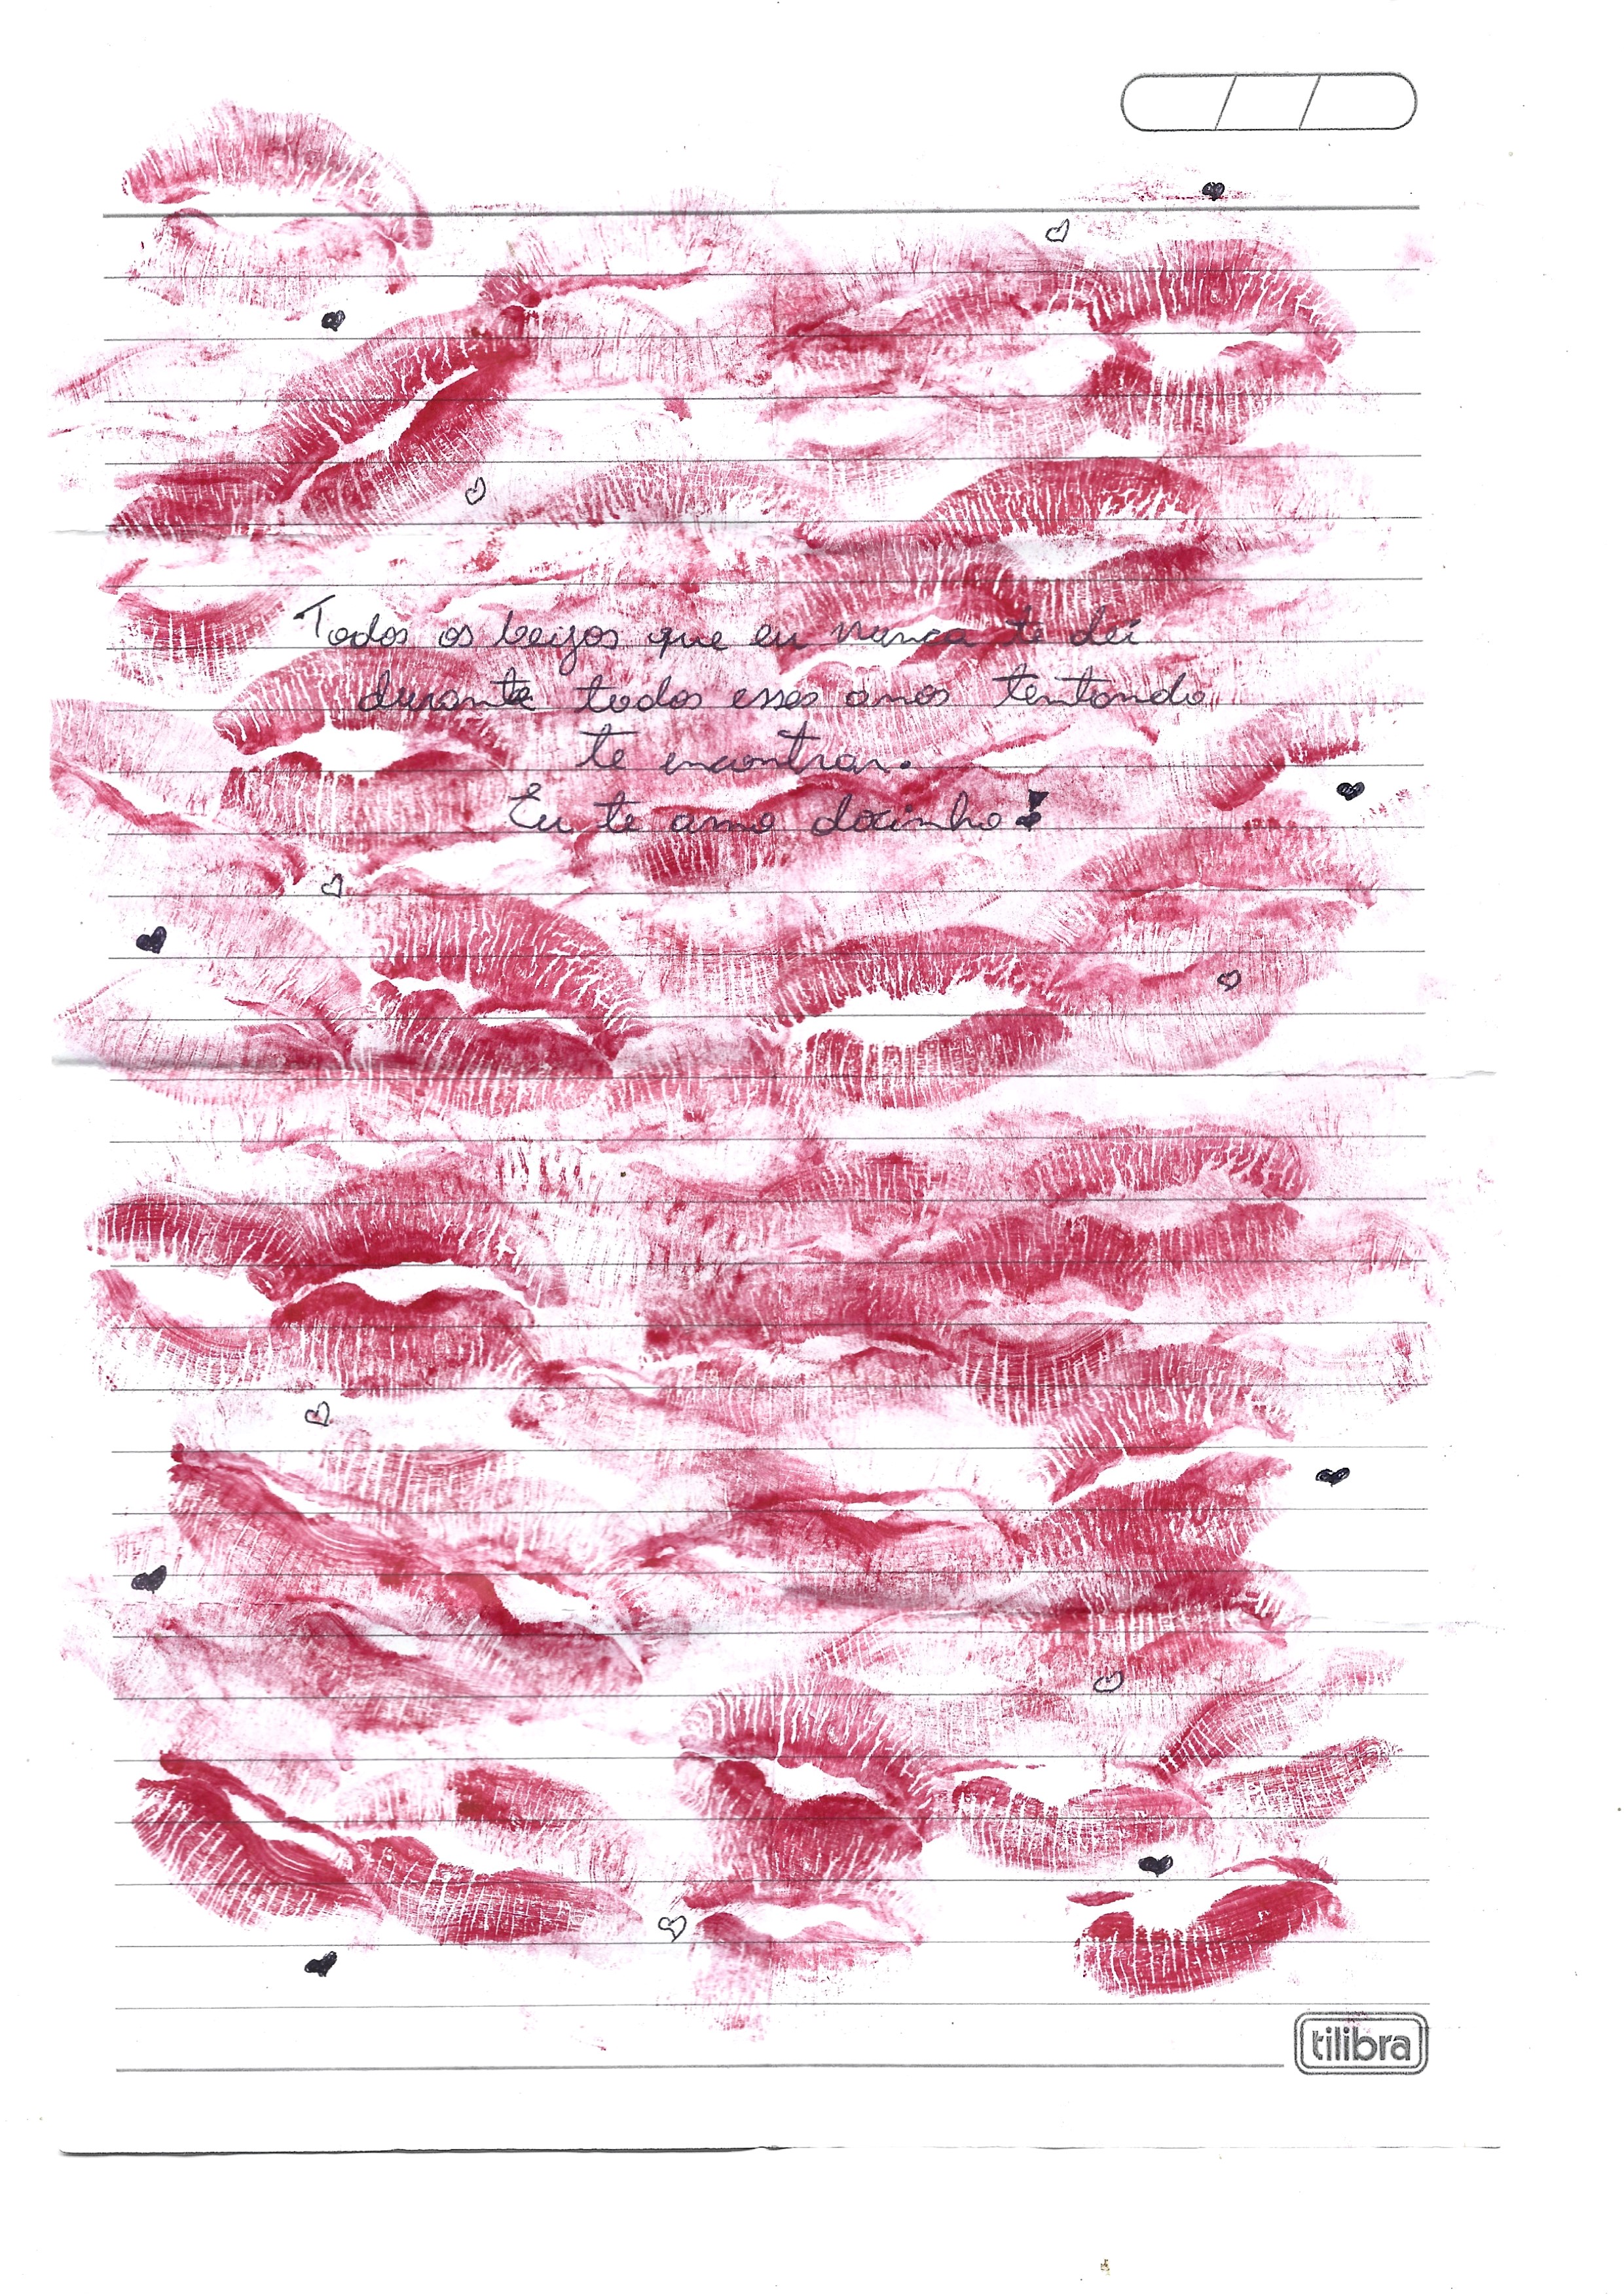 Todos os beijos que eu nunca te dei
durante todos esses anos tentando
te encontrar.
Eu te amo docinho!
tilibra